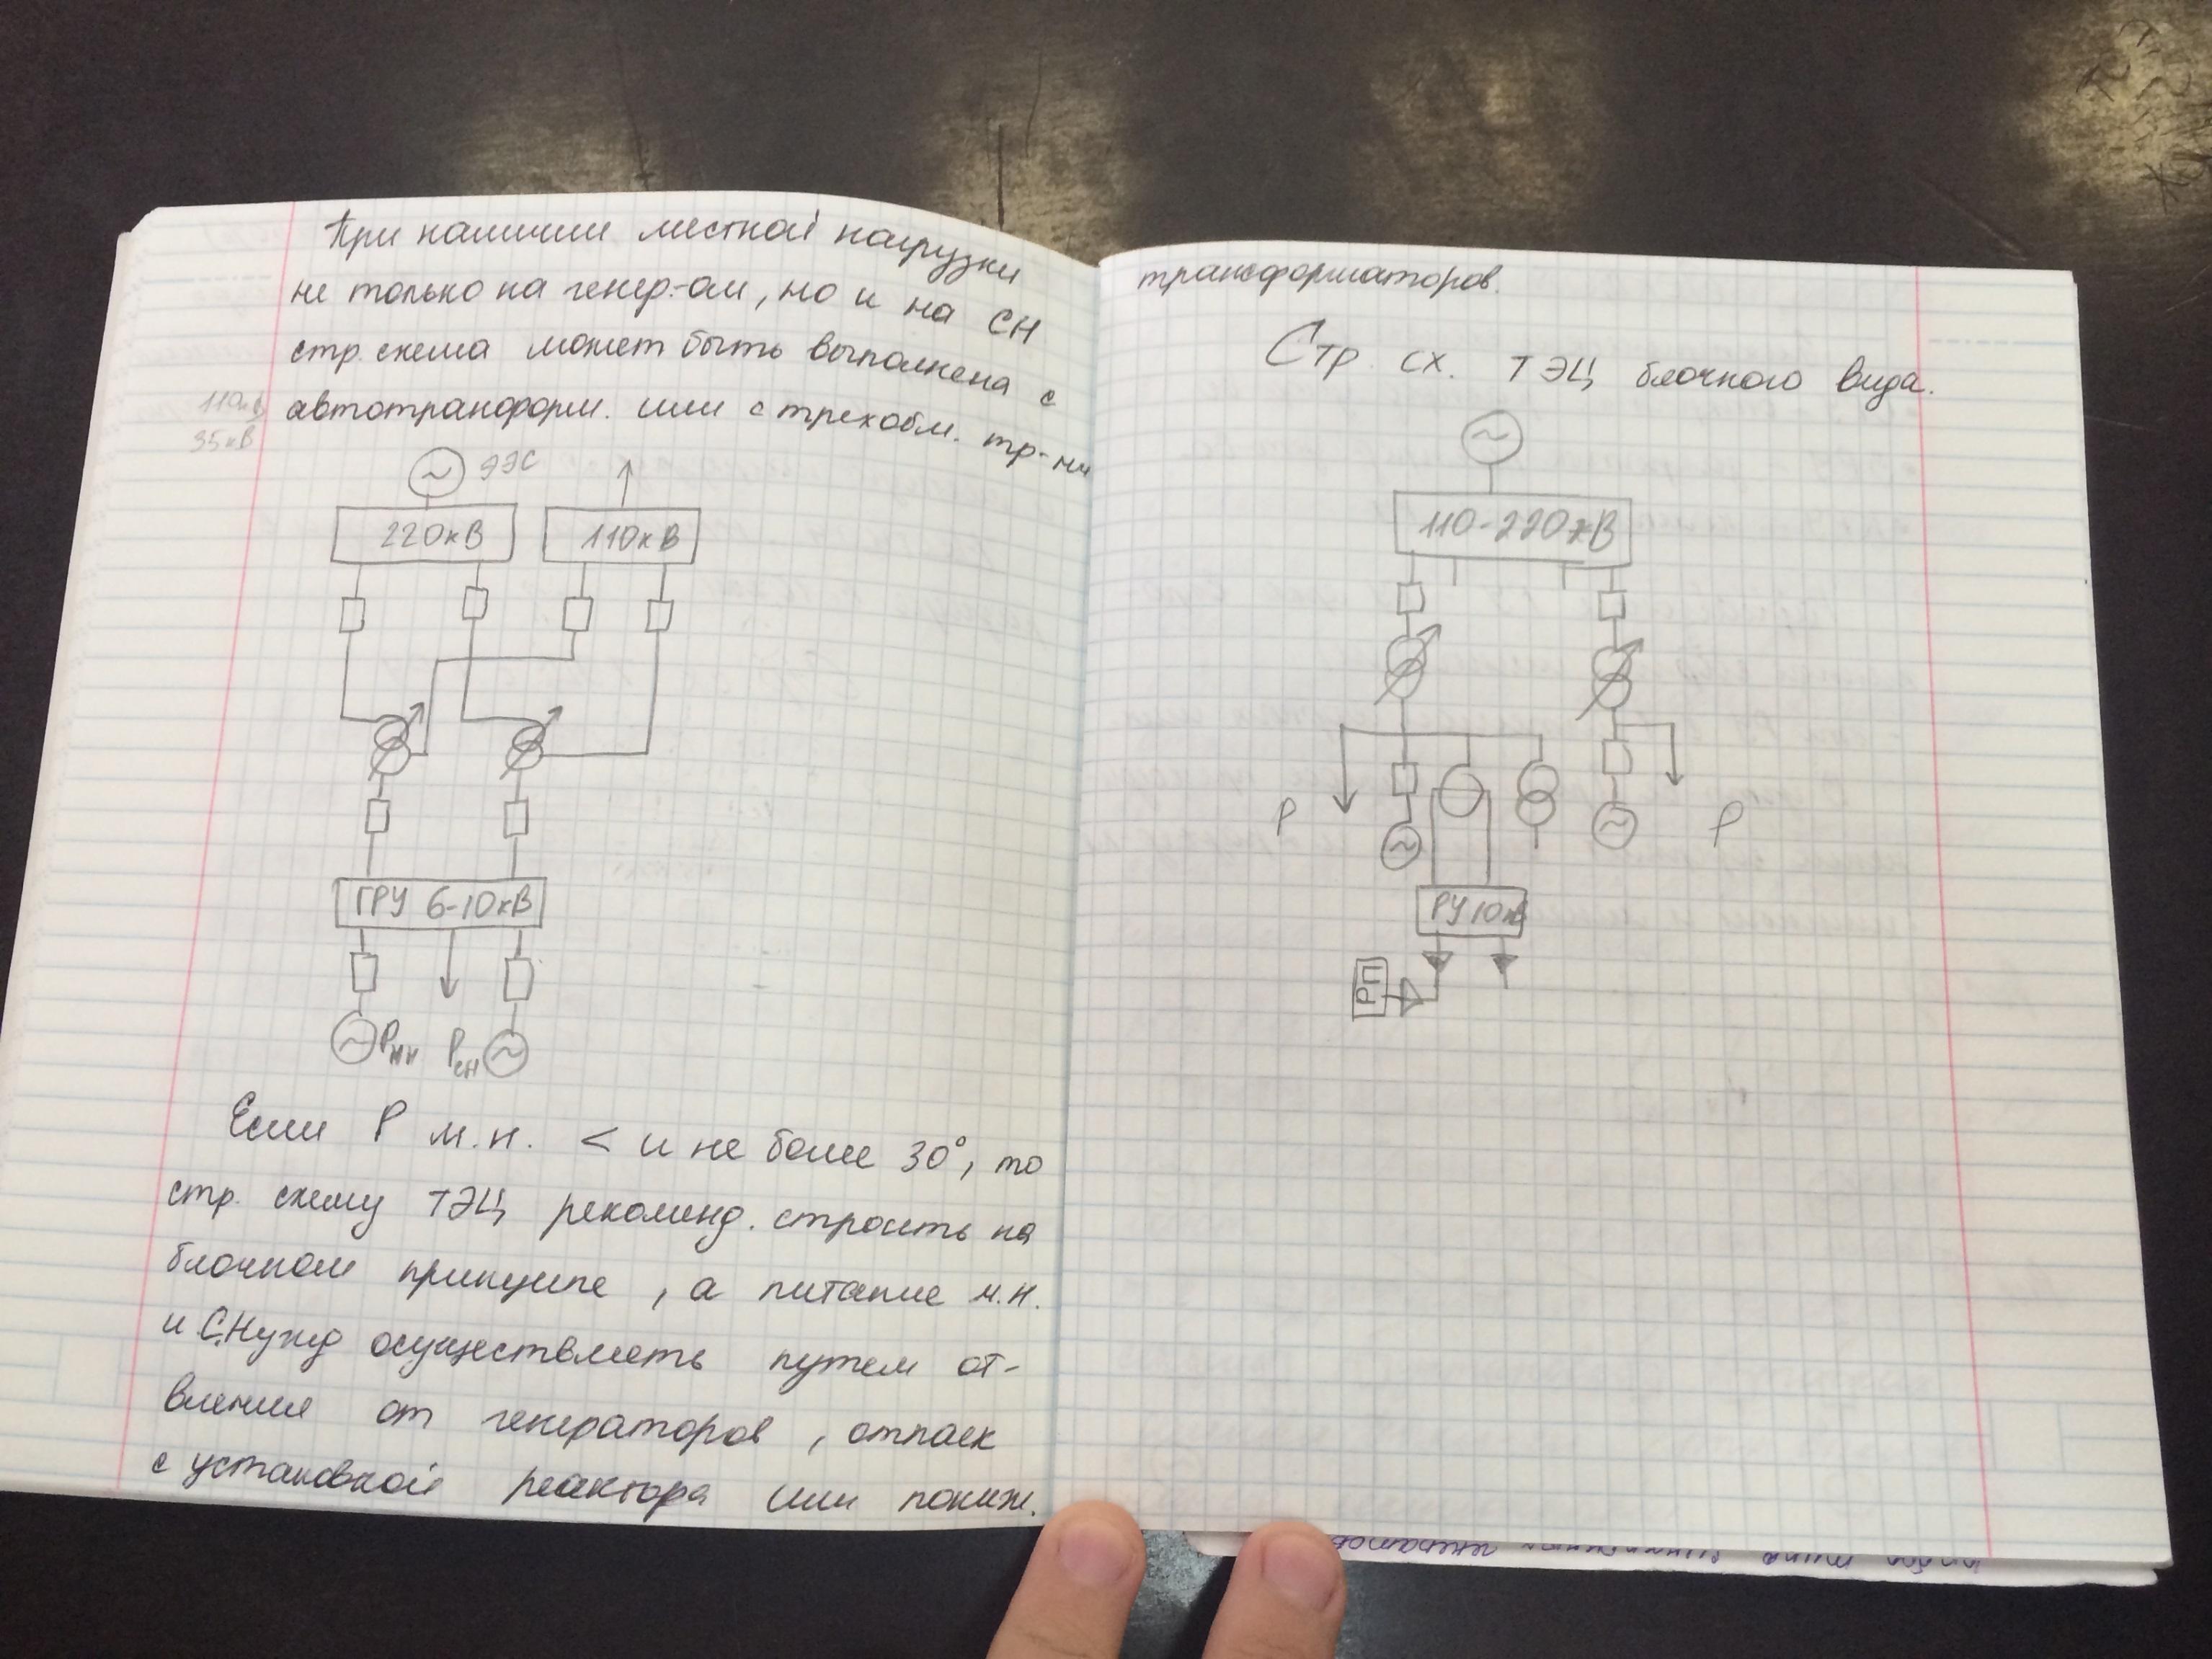 При наличии местной нагрузки
не только на генер-ом, но и на СН
стр. схема может быть выполнена с
автотрансформ. или с трехобм. тр-ми
110кВ
35кВ
ЭЭС
220кВ 110кВ
ГРУ 6-10кВ
Рмн Рсн
Если Р м.н. < и не более 30°, то
стр. схему ТЭЦ рекоменд. строить на
блочном принципе, а питание м.н.
и С.Нужд осуществлять путем от-
вления от генераторов, отпаек
с установкой реактора или пониж.
трансформаторов.
Стр. сх. ТЭЦ блочного вида.
110-220кВ
Р Р
РУ 10кВ
РП
генераторов